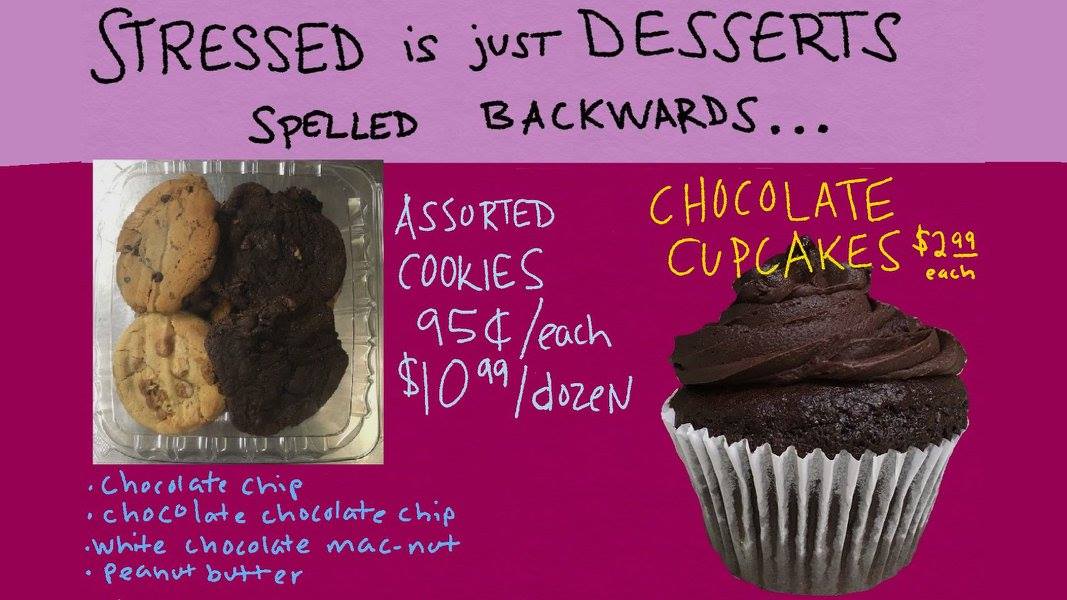 STRESSED is just DESSERTS
SPELLED BACKWARDS...
ASSORTED
COOKIES
95¢/each
$10.99/dozen
CHOCOLATE
CUPCAKES $2.99
each
• Chocolate chip
• chocolate chocolate chip
• white chocolate mac-nut
• peanut butter